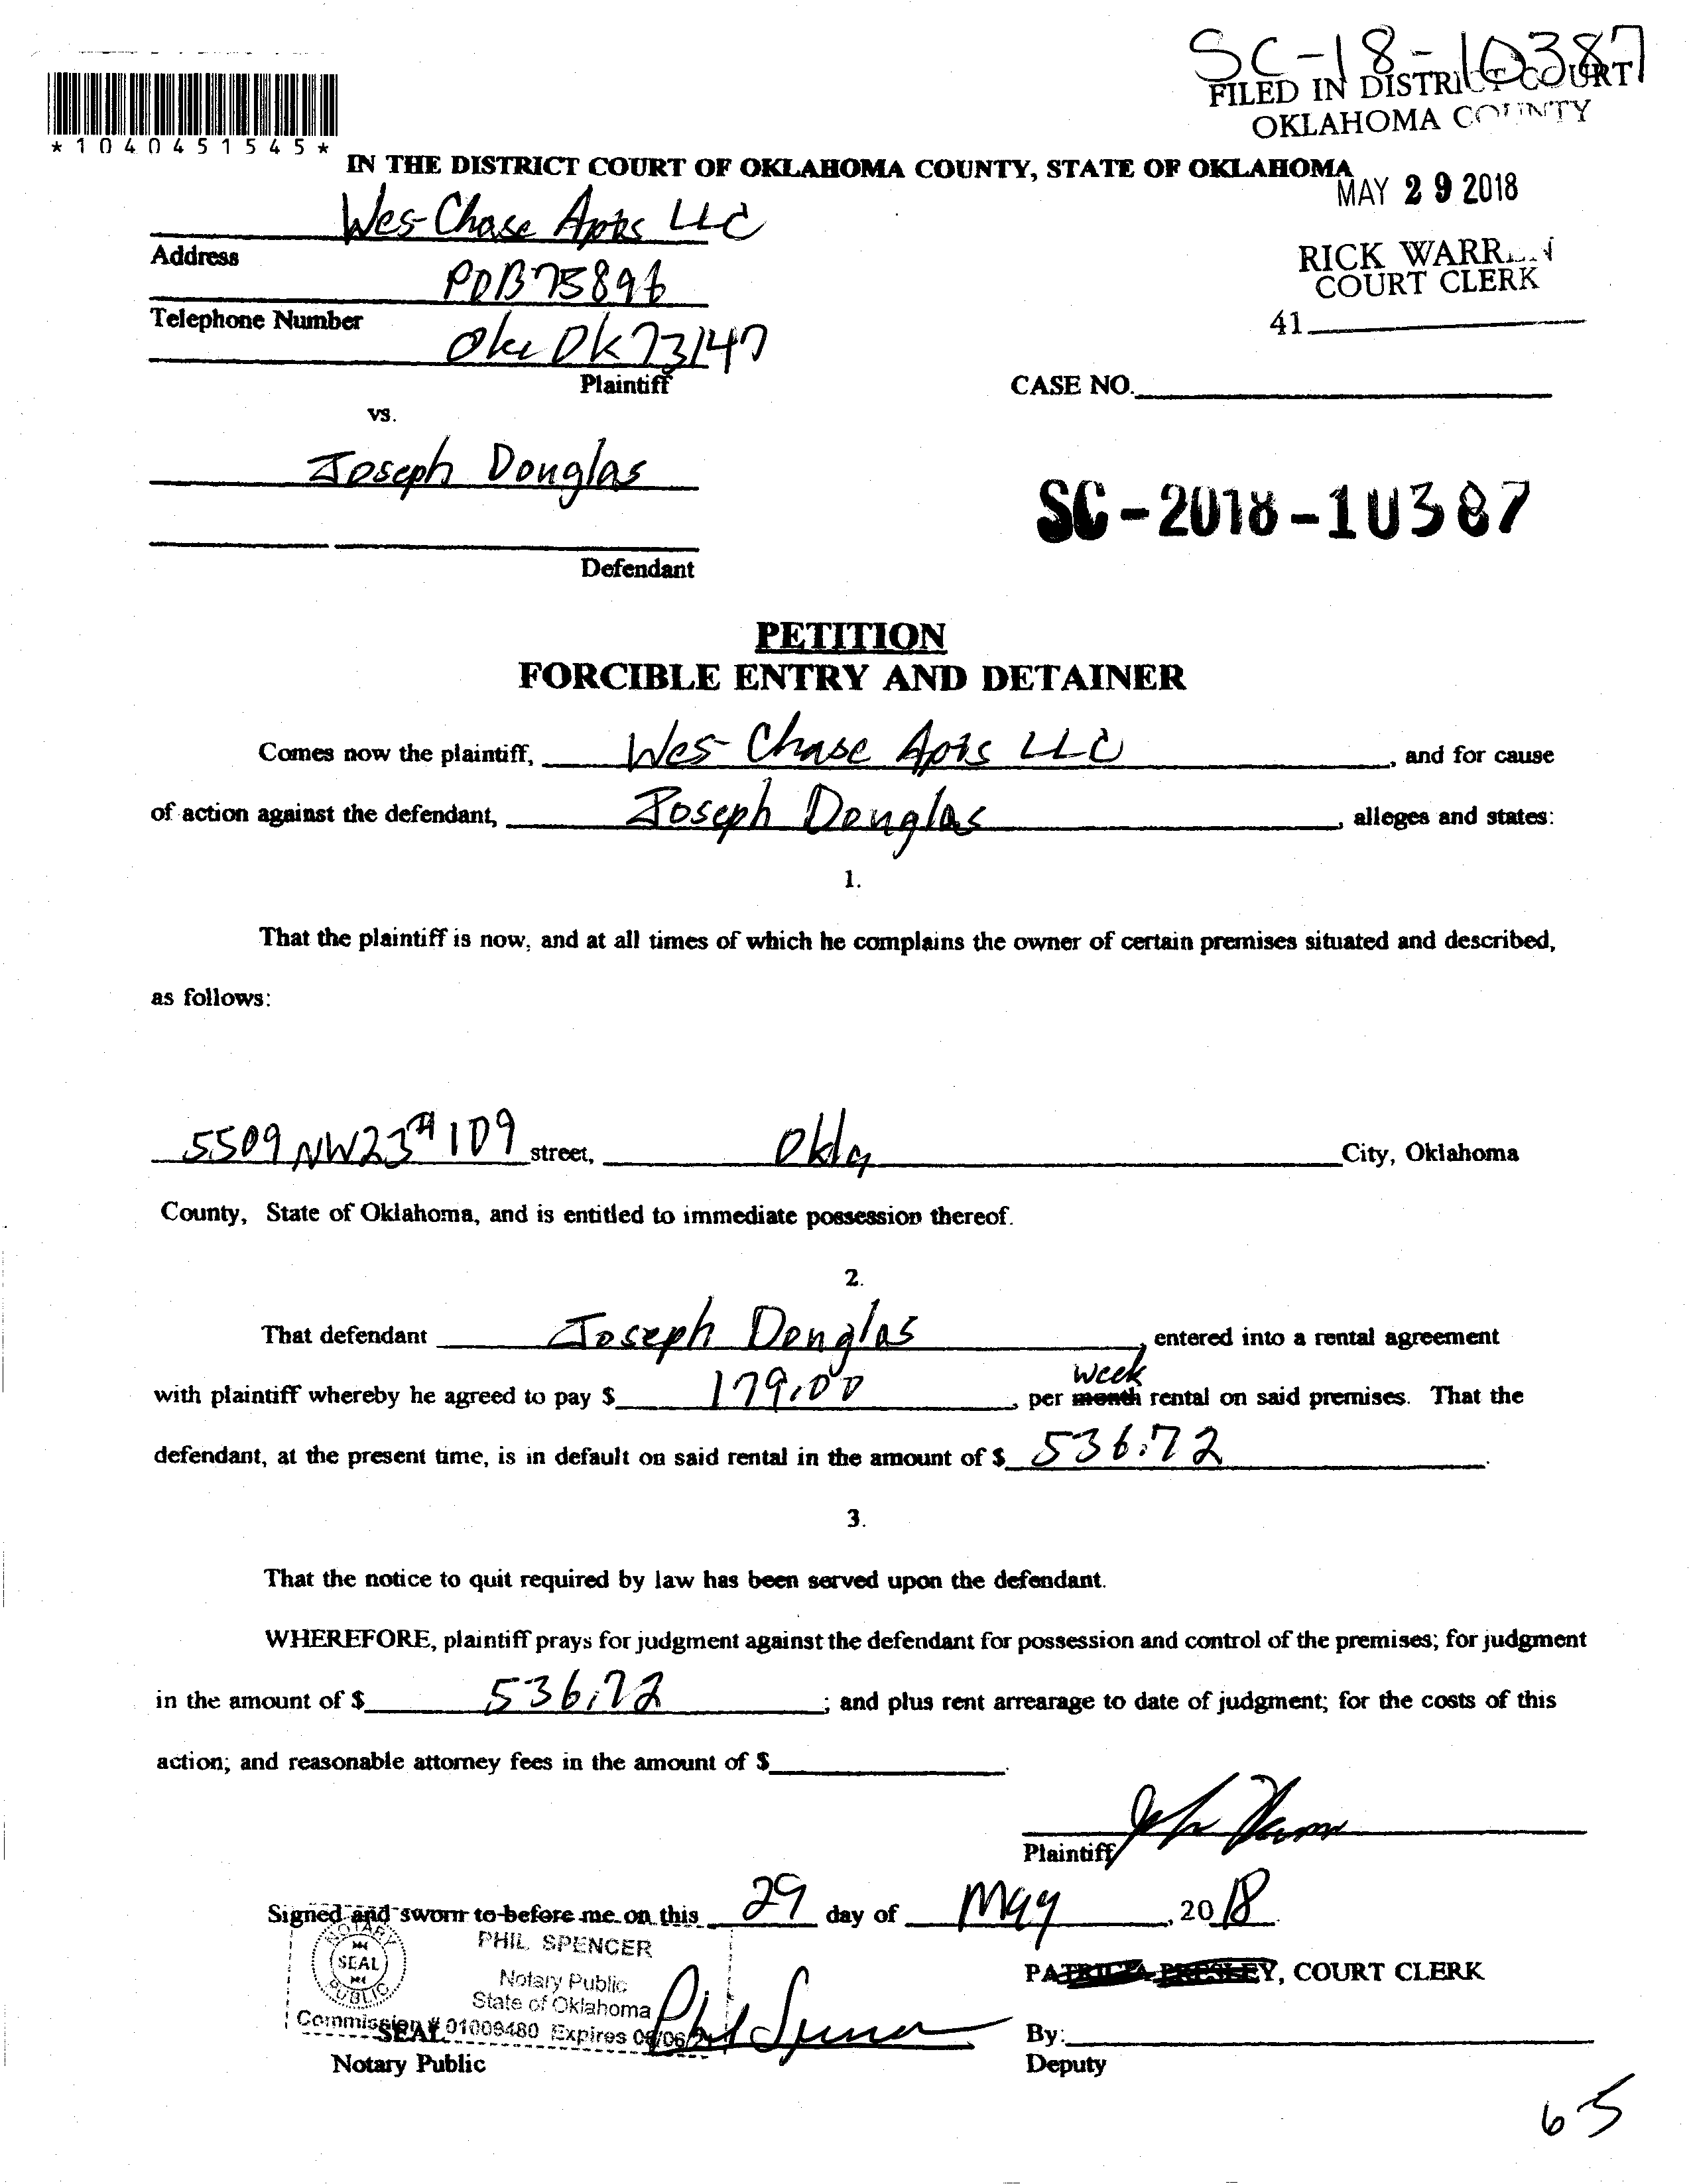 SC-18-10387
FILED IN DISTRICT COURT
OKLAHOMA COUNTY
*1040451545*
IN THE DISTRICT COURT OF OKLAHOMA COUNTY, STATE OF OKLAHOMA
MAY 29 2018
Wes Chase Apts LLC
Address
RICK WARREN
COURT CLERK
POB 75896
Telephone Number
41
Okc Ok 73147
Plaintiff
CASE NO.
vs.
Joseph Douglas
SC-2018-10387
Defendant
PETITION
FORCIBLE ENTRY AND DETAINER
Comes now the plaintiff, Wes Chase Apts LLC, and for cause
of action against the defendant, Joseph Douglas, alleges and states:
1.
That the plaintiff is now, and at all times of which he complains the owner of certain premises situated and described,
as follows:
5509 NW 23rd 109 street, Okla City, Oklahoma
County, State of Oklahoma, and is entitled to immediate possession thereof.
2.
That defendant Joseph Douglas, entered into a rental agreement
week
with plaintiff whereby he agreed to pay $ 179.00, per month rental on said premises. That the
defendant, at the present time, is in default on said rental in the amount of $ 536.72.
3.
That the notice to quit required by law has been served upon the defendant.
WHEREFORE, plaintiff prays for judgment against the defendant for possession and control of the premises; for judgment
in the amount of $ 536.72; and plus rent arrearage to date of judgment; for the costs of this
action; and reasonable attorney fees in the amount of $.
Plaintiff
Signed and sworn to before me on this 29 day of May, 2018.
NOTARY
SEAL
PUBLIC
PHIL SPENCER
Notary Public
State of Oklahoma
PATRICIA PRESLEY, COURT CLERK
Commission # 01009480 Expires 06/06/21
Phil Spencer
SEAL
By:
Notary Public
Deputy
65